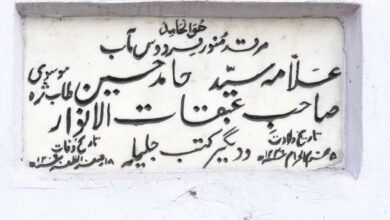 ھوالحامد
مرقد منور فردوس مآب
علامہ سید حامد حسین موسوی طاب ثرہ
صاحب عبقات الانوار
و دیگر کتب جلیلہ
تاریخ ولادت
تاریخ وفات